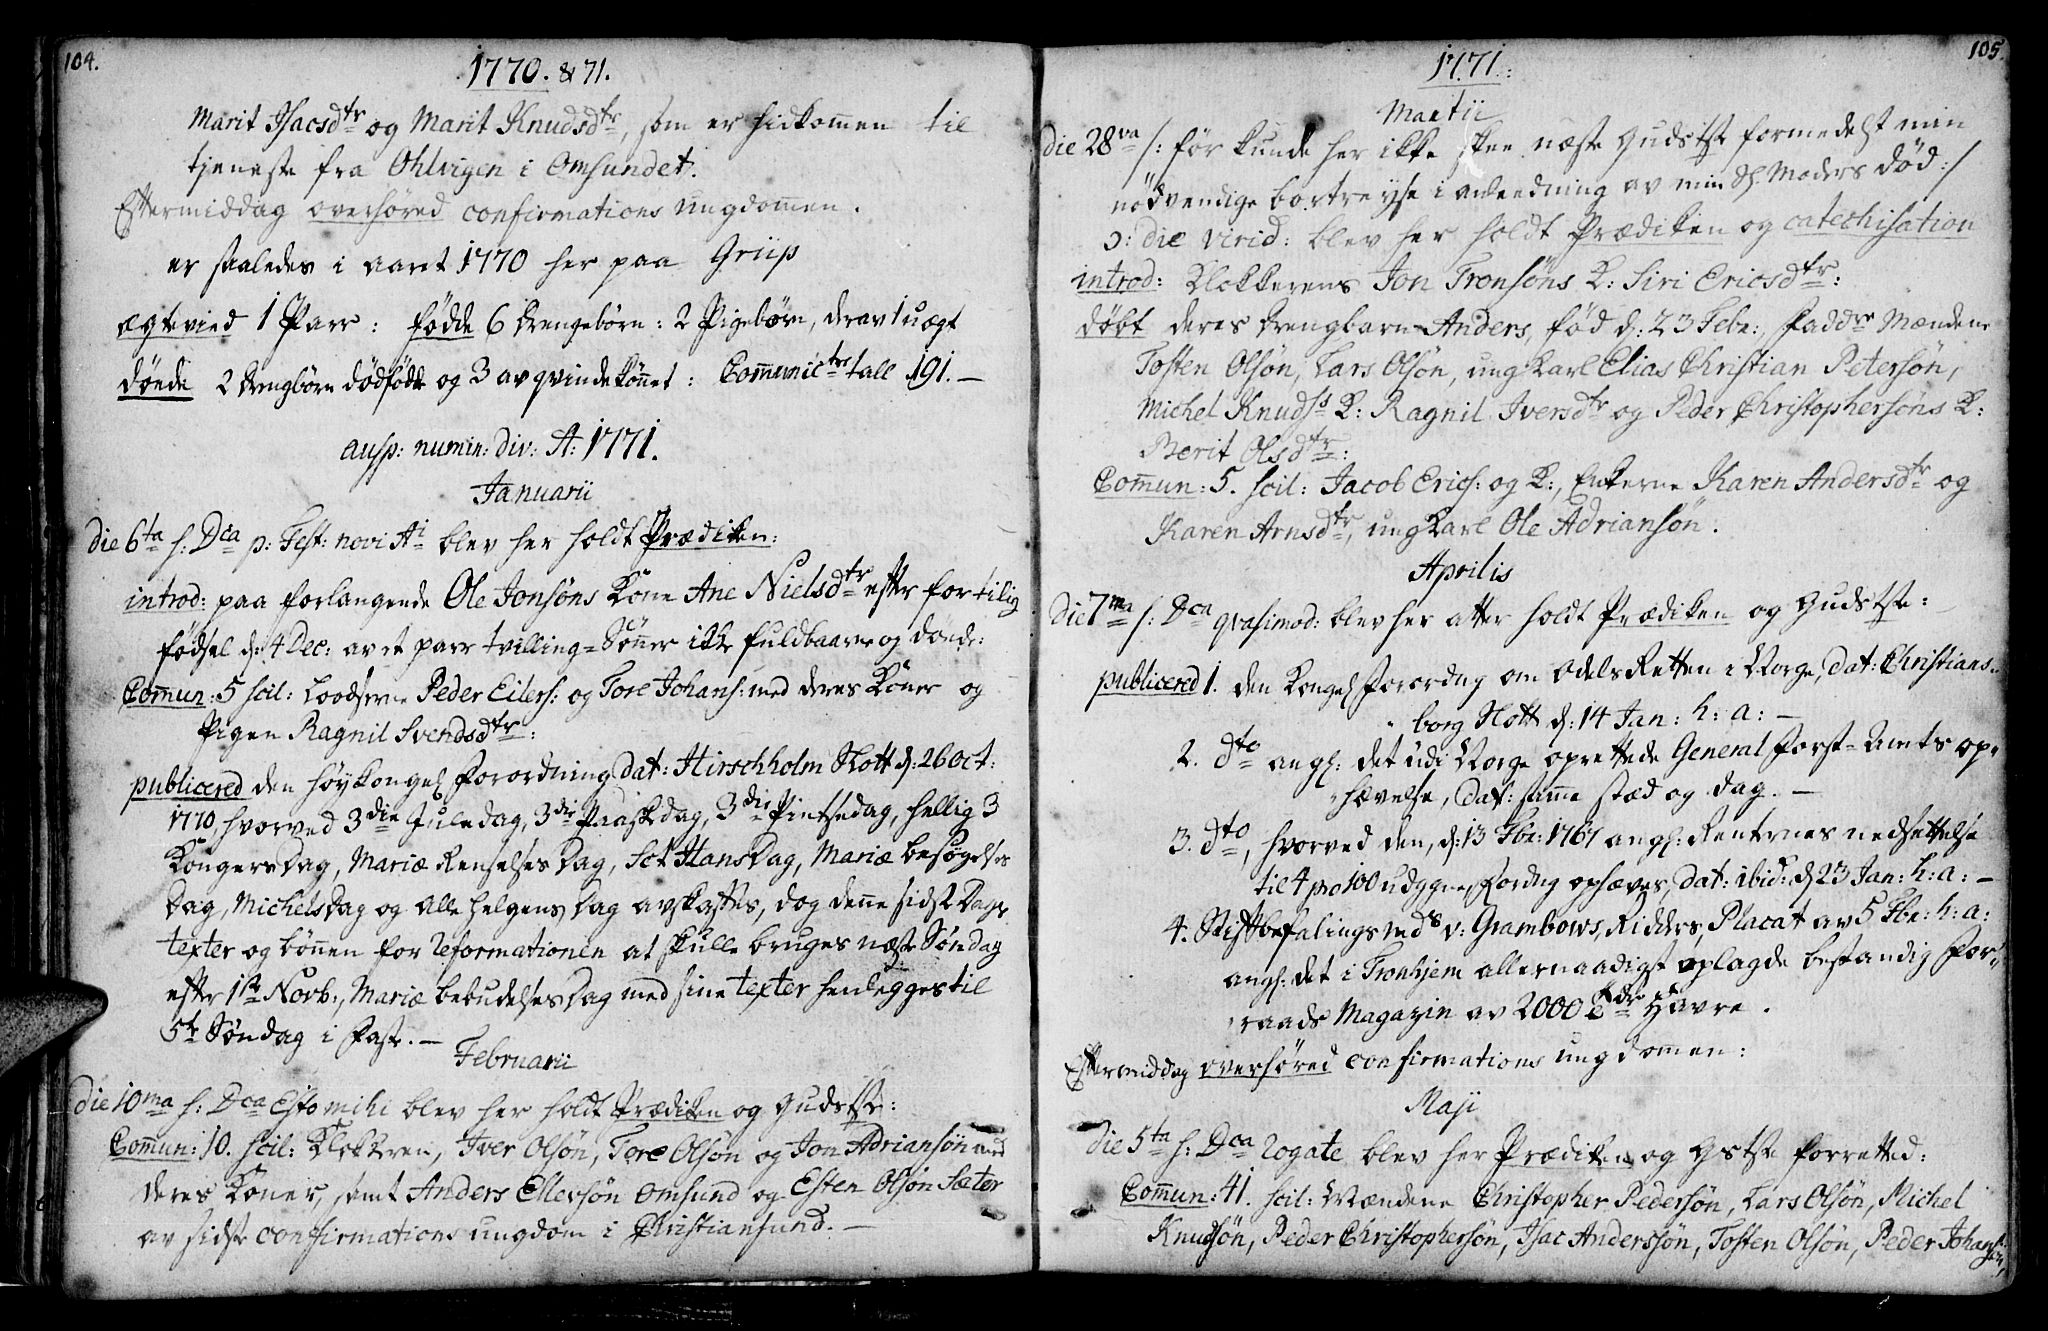 104.
1770. & 71.
Marit Isacsdtr og Marit Knudsdtr, som er hidkommen til
tjeneste fra Ohlvigen i Omsundet.
Eftermiddag overhøred confirmations ungdommen.
er saaledes i aaret 1770 her paa Griip
ægtevied 1 Parr: fødde 6 drengebørn: 2 Pigebørn, derav 1 uægt
dönde 2 drengbørn dödfödde og 3 av qvindekönnet: Communictrs tall 191.—
ausp: numin: div: A: 1771.
Januarii
die 6ta s: Dca p: Fest: novi Ai blev her holdt Prædiken:
introd: paa forlangende Ole Jonsöns Kone Ane Nielsdtr efter fortilig
fødsel d: 4 Dec: av et parr tvilling-Sønner ikke fuldbaarne og dönde:
Commun: 5 scil: Loodserne Peder Eilers: og Tore Johans: med deres Koner og
Pigen Ragnil Svendsdtr:
publicered den höykongel Forordning dat: Hirschholm Slott d: 26 Oct:
1770, hvorved 3die Juledag, 3die Paaskedag, 3die Pintsedag, hellig 3
Kongers Dag, Mariæ Renselses Dag, Sct Hans Dag, Mariæ besøgelses
Dag, Michels Dag og Alle helgens Dag avskaffes, dog denne sidste Dags
texter og bönnen for Reformationen at skulle bruges næste Søndag
efter 1ste Novb:, Mariæ bebudelses Dag med sine texter henlegges til
5te Søndag i Faste.—
Februarii
die 10ma s: Dca Estomihi blev her holdt Prædiken og Gudstste:
Commun: 10. scil: Klokkeren, Iver Olsøn, Tore Olsön og Jon Adriansön med
deres Koner, samt Anders Ellevsön Omsund og Esten Olsøn Sæter
av sidste confirmations ungdom i Christiansund.—
105.
1771.:
Martii
die 28va /: før kunde her ikke skee næste Gudstste formedelst min
nödvendige bortreyse i anleedning av min Sl. Moders död :/
ɔ: die virid: blev her holdt Prædiken og catechisation
introd: Klokkerens Jon Tronsöns K: Siri Ericsdtr:
döbt deres drengbarn Anders, född d: 23 Febr:, Faddre Mændene
Tosten Olsön, Lars Olsön, ungkarl Elias Christian Petersön,
Michel Knuds K: Ragnil Iversdtr og Peder Christophersöns K:
Berit Olsdtr:
Commun: 5. scil: Jacob Erics: og K:, Enkerne Karen Andersdtr og
Karen Arnsdtr, ungkarl Ole Adriansön.
Aprilis
die 7ma s: Dca qvasimod: blev her atter holdt Prædiken og Gudstste:
publicered 1. den kongel Forordng om Odels Retten i Norge, dat: Christians-
borg Slott d: 14 Jan: h: a:—
2. dto angl: det udi Norge oprettede General Forst-Amts op-
hævelse, dat: samme stæd og dag.—
3. dto, hvorved den, d: 13 Fbr: 1767 angl: Renternes nedsettelse
til 4 pro 100 udggne Fordng ophæves, dat: ibid: d 23 Jan: h: a:—
4. Stiftbefalingsmds v: Grambows, Ridders, Placat av 5 Fbr: h: a:
angl: det i Tronhjem allernaadigst oplagde bestandig For-
raads Magazin av 2000 Tdr Havre.
Eftermiddag overhøred confirmations ungdommen:
Maji
die 5ta s: Dca Rogate blev her Prædiken og Gstste forretted:
Commun: 41. scil: Mændene Christopher Pedersön, Lars Olsön, Michel
Knudsön, Peder Christophersön, Isac Anderssön, Tosten Olsön, Peder Johans: